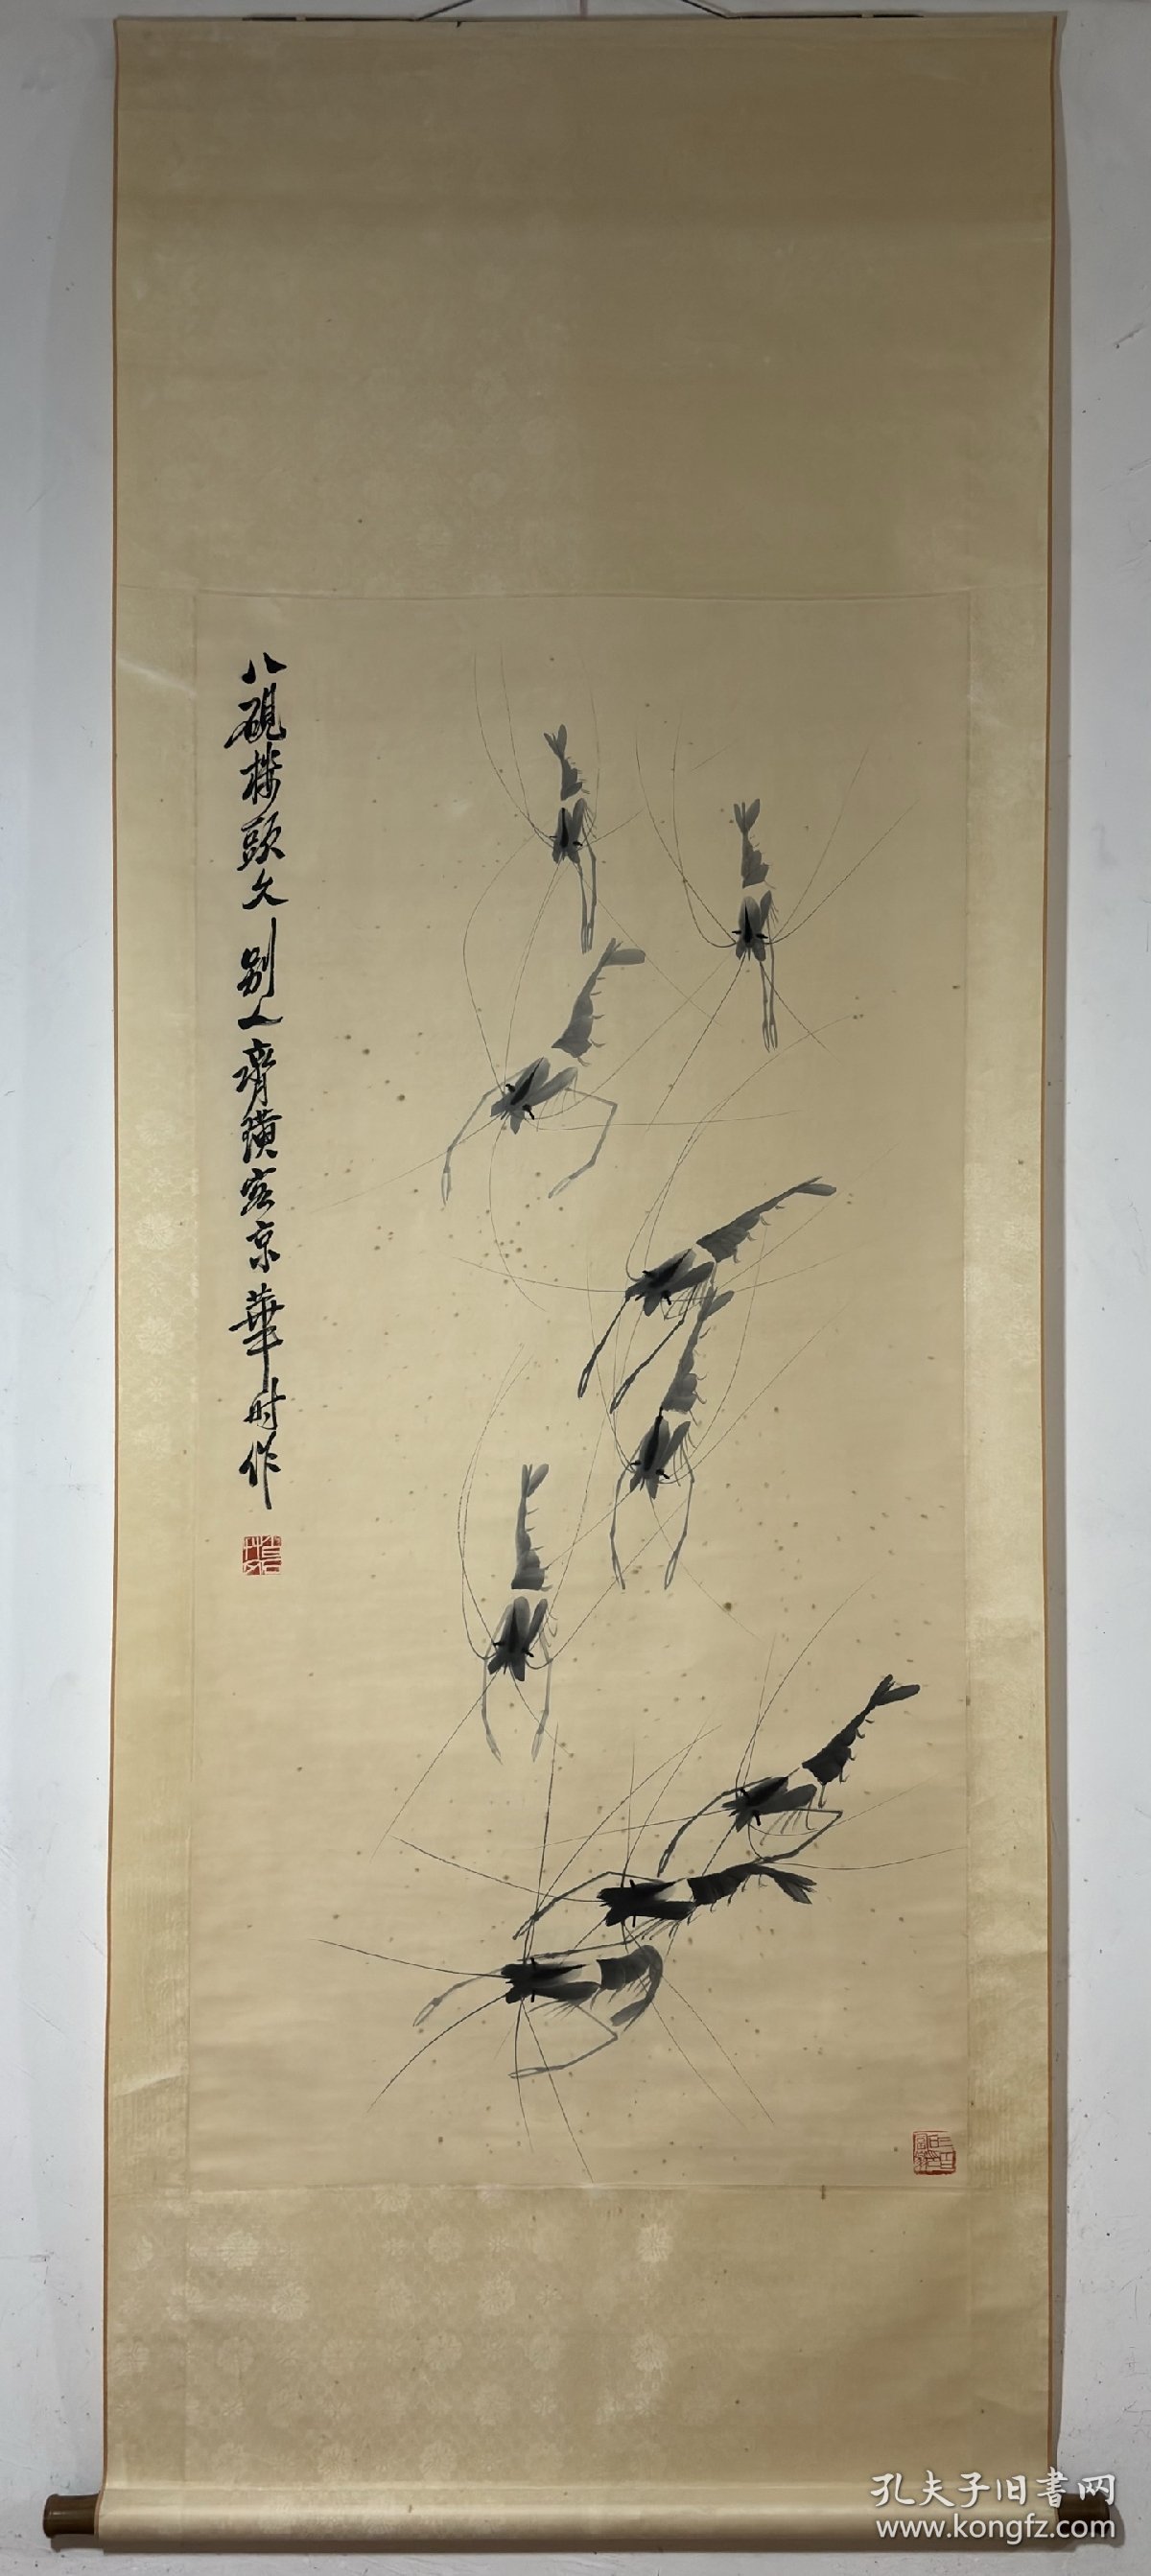 八砚楼頭久别人齊璜客京華时作
孔夫子旧書网
www.kongfz.com